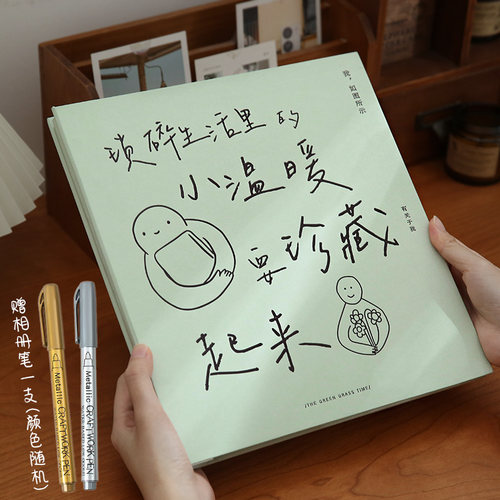 我，如图所示
琐碎生活里的
小温暖
要珍藏
起来
有关于我
/THE GREEN GRASS TIME/
赠相册笔一支(颜色随机)
Metallic CRAFTWORK PEN
Metallic CRAFTWORK PEN